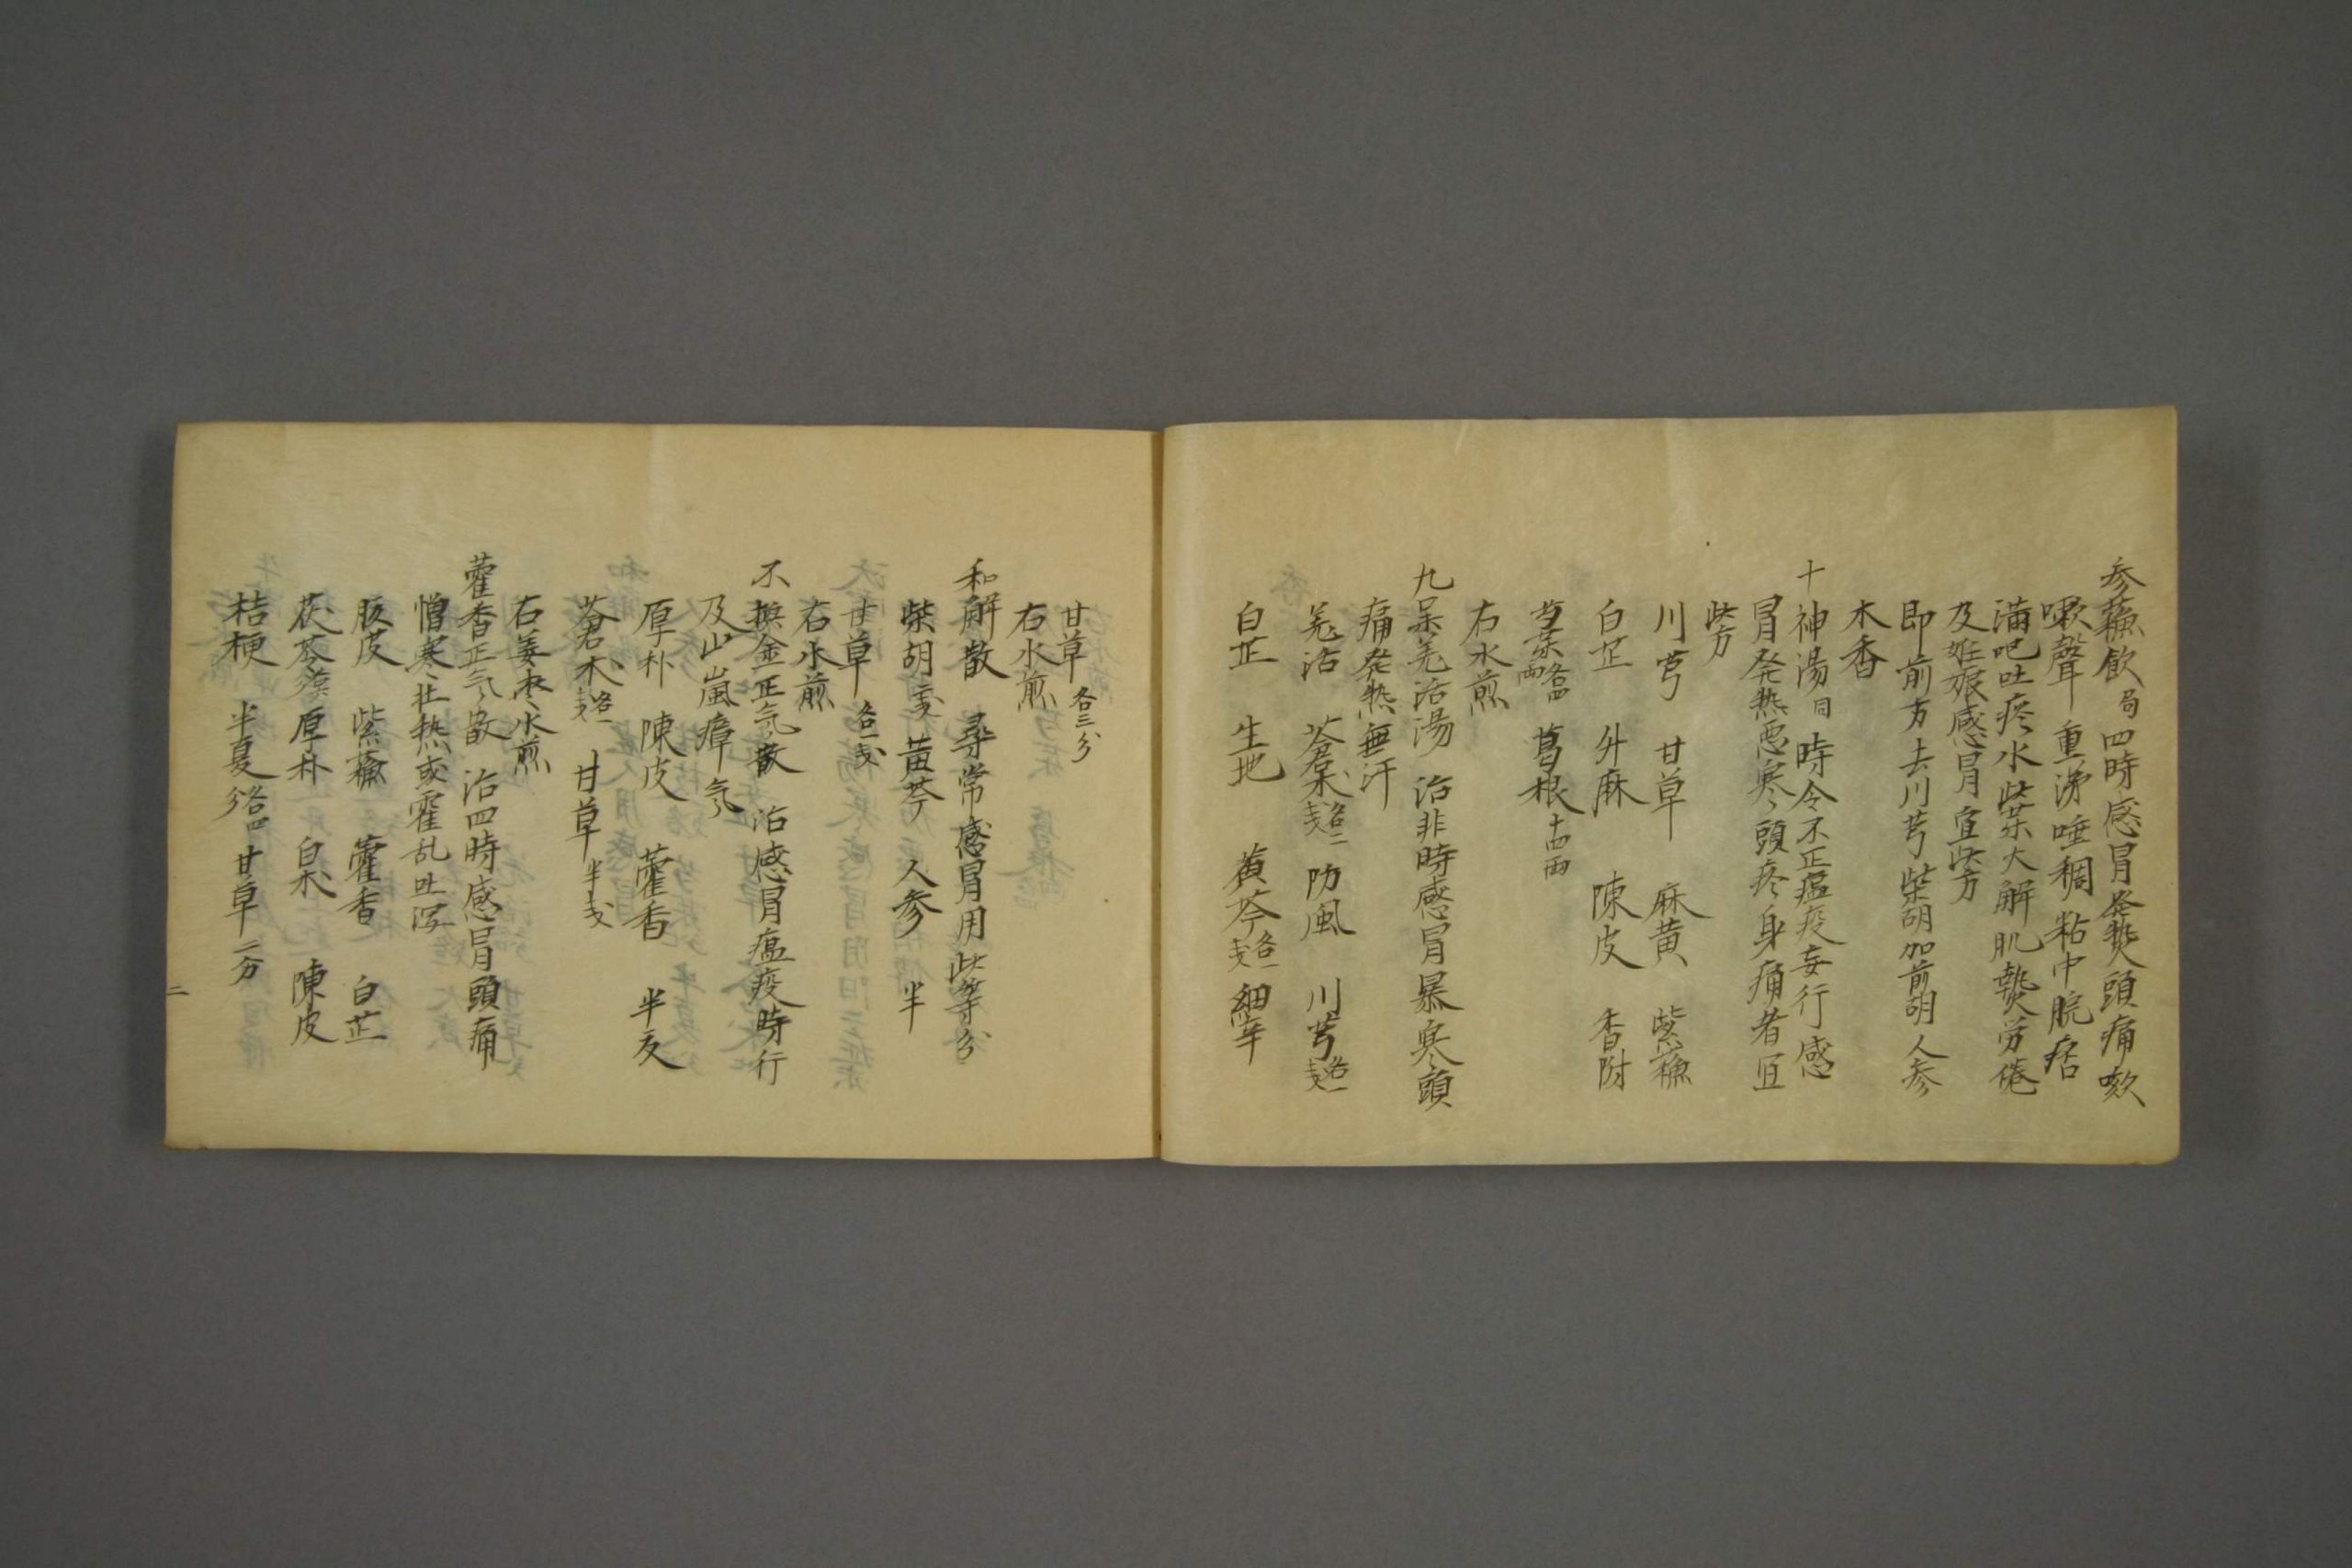 参蘓飲 局 四時感冒発熱頭痛咳
嗽聲重涕唾稠粘中脘痞
満吧吐痰水此薬大解肌熱労倦
及妊娠感冒宜此方
即前方去川芎柴胡加前胡人参
木香
十神湯 同 時令不正瘟疫妄行感
冒発熱悪寒頭疼身痛者宜
此方
川芎 甘草 麻黄 紫蘓
白芷 升麻 陳皮 香附
芍薬 各四両 葛根 十四両
右水煎
九味羌活湯 治非時感冒暴寒頭
痛発熱無汗
羌活 蒼朮 各二戔 防風 川芎 各一戔
白芷 生地 黄芩 各一戔 細辛
甘草 各三分
右水煎
和解散 尋常感冒用此等分
柴胡 二戔 黄芩 人参 半
甘草 各一戔
右水煎
不換金正気散 治感冒瘟疫時行
及山嵐瘴気
厚朴 陳皮 藿香 半夏
蒼朮 各一戔 甘草 半戔
右姜枣水煎
藿香正気散 治四時感冒頭痛
憎寒壮熱或霍乱吐瀉
腹皮 紫蘓 藿香 白芷
茯苓 厚朴 白朮 陳皮
桔梗 半夏 各四分 甘草 二分
二